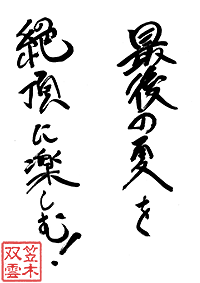 最後の夏を
絶頂に楽しむ!
笠木
双雲